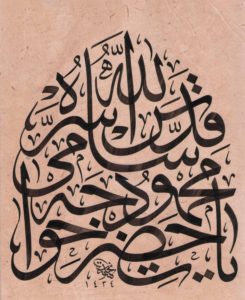 يا حضرت خواجه
محمود
سامى
قدس الله سره
١٤٣٤